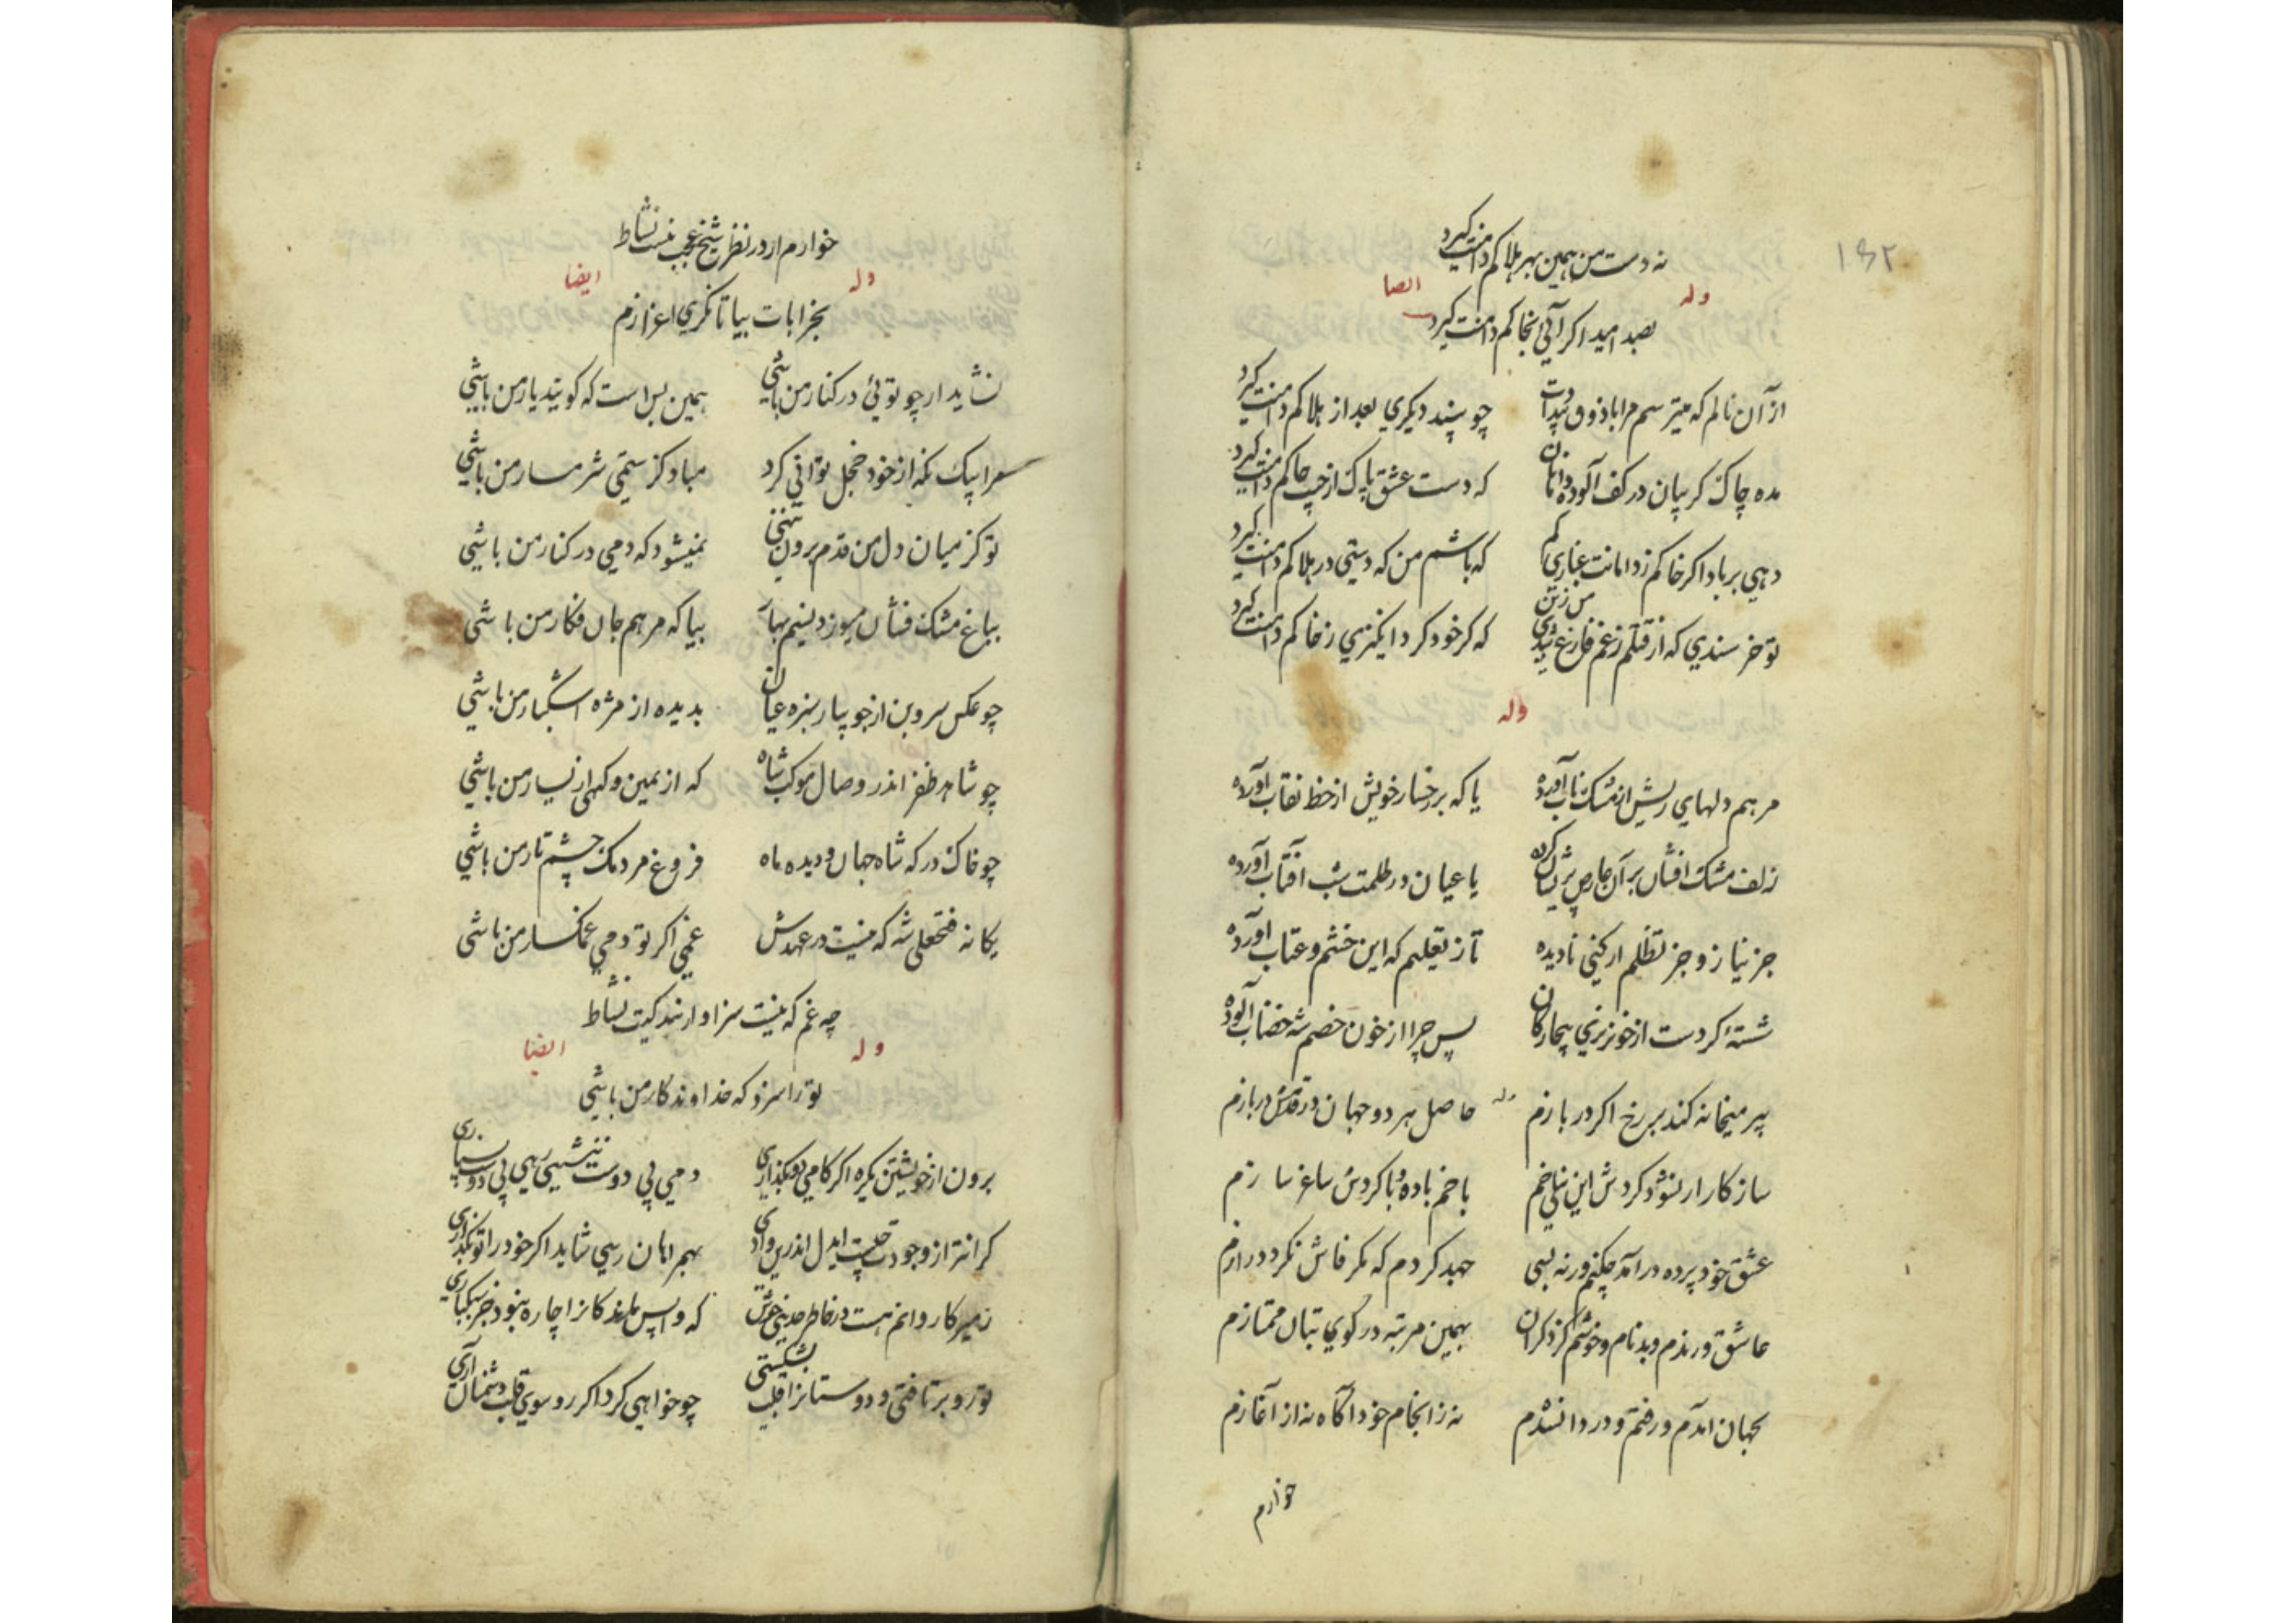 ۱۵۲
نه دست من همین بهر هلاکم دامنت گیرد
وله ایضا
بصد امید اگر آئی بخاکم دامنت گیرد
از آن نالم که میترسم مرا با ذوق پیدادت چو بیند دیگری بعد از هلاکم دامنت گیرد
مده چاک کریبان در کف آلوده دامانان که دست عشق پاک از جیب چاکم دامنت گیرد
دهی بر باد اگر خاکم ز دامانت غباری کم که باشم من که دستی در هلاکم دامنت گیرد
تو خرسندی که از قتلم ز غم فارغ شدی من زین که گر خود گرد انگیزی ز خاکم دامنت گیرد
وله
مرهم دلهای ریش از مشک ناب آورده یا که بر رخسار خویش از خط نقاب آورده
زلف مشک افشان بر آن عارض پریشان کرده یا عیان در ظلمت شب آفتاب آورده
جز نیاز و جز تظلم از کنی نادیده تاز تعلیم که این خشم و عتاب آورده
شستهٔ گر دست از خونریزی بیچارگان پس چرا از خون خصم شه خضاب آلوده
پیر میخانه کند بر رخ اگر در بازم وله حاصل هر دو جهان در قدمش دربازم
ساز کار ار نشود گردش این نیلی خم با خم باده و با گردش ساغر سازم
عشق خود پرده در آمد چکنم ورنه بسی جهد کردم که مگر فاش نگردد رازم
عاشق و رندم و بدنام و خوشم کز دگران بهمین مرتبه در کوی بتان ممتازم
بجهان آمدم و رفتم و دردا نشدم نه ز انجام خود آگاه نه از آغازم
خوارم
خوارم ار در نظر شیخ عجب نیست نشاط
وله ایضا
بخرابات بیا تا نگری اعزازم
نشاید ار چو توئی در کنار من باشی همین بس است که گویند یار من باشی
سرا پیک نگه از خود خجل توانی کرد مباد کز ستمی شرمسار من باشی
تو کز میان دل من قدم برون ننهی نمیشود که دمی در کنار من باشی
بباغ مشک فشان میوزد نسیم بهار بیا که مرهم جان فکار من باشی
چو عکس سروبن از جویبار سبزه عیان بدیده از مژه اشکبار من باشی
چو شاهد ظفر اندر وصال موکب شاه که از یمین و گهی از یسار من باشی
چو خاک درگه شاه جهان و دیده ماه فروغ مردمک چشم تار من باشی
یگانه فتحعلی شه که نیست در عهدش غمی اگر تو دمی غمگسار من باشی
چه غم که نیست سزاوار بندگیت نشاط
وله ایضا
تو را سزد که خداوندگار من باشی
برون از خویشتن یکره اگر گامی تو بگذاری دمی پی دوست ننشینی رهی پی دوست نسپاری
گرانتر از وجودت چیست ایدل اندرین وادی بهمراهان رسی شاید اگر خود را تو بگذاری
ز میر کاروانم هست در خاطر حدیثی خوش که واپس ماندگانرا چاره نبود جز سبکباری
تو رو برتافتی و دوستانرا قلب بشکستی چو خواهی کرد اگر رو سوی قلب دشمنان آری